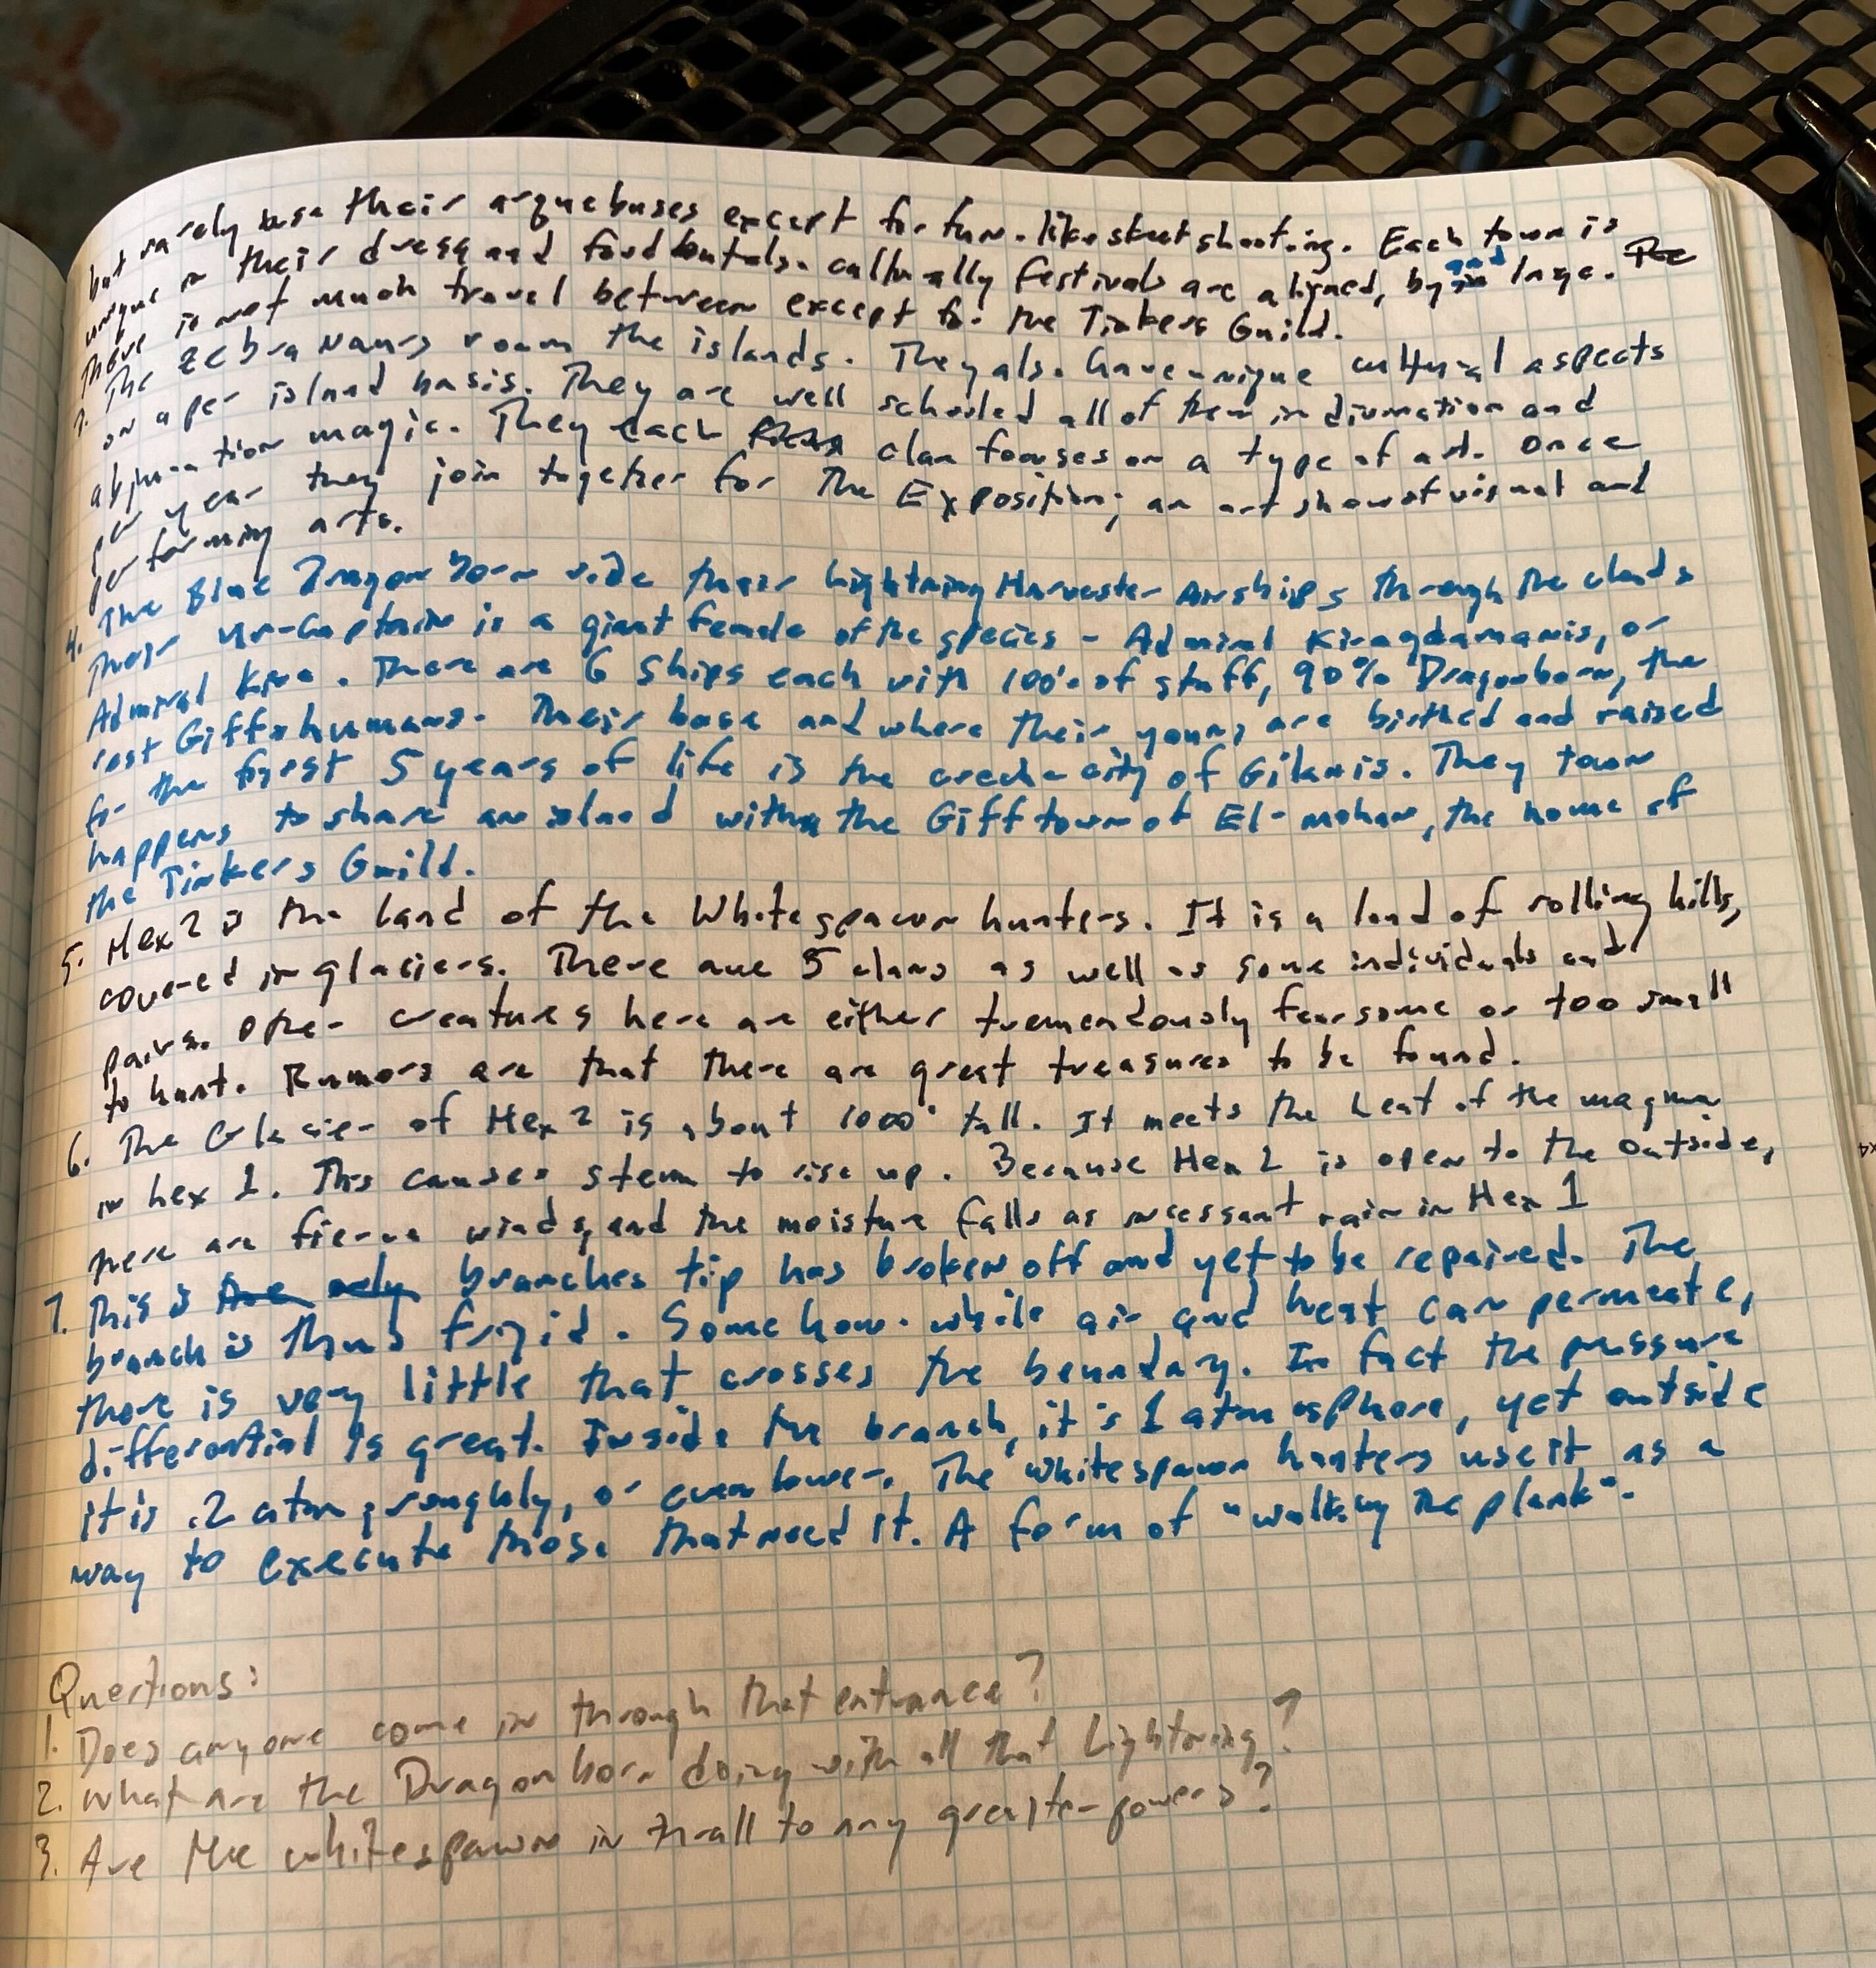 but rarely use their arquebuses except for fun. like skeet shooting. Each town is
unique in their dress and food but also culturally festivals are aligned, by and large. The
There is not much travel between except for the Tinkers Guild.
3. The zebra roam the islands. They also have unique cultural aspects
on a per island basis. They are well schooled all of them in divination and
abjuration magic. They each clan focuses on a type of art. Once
per year they join together for The Exposition; an art show of visual and
performing arts.
4. The Blue Dragon born ride their Lightning Harvester Airships through the clouds
Their ur-Captain is a giant female of the species - Admiral Kiragdamanis, or
Admiral Kira. There are 6 ships each with 100's of staff, 90% Dragonborn, the
rest Giff & humans. Their base and where their young are birthed and raised
for the first 5 years of life is the creche city of Gilanis. They town
happens to share an island with the Giff town of El-mohan, the home of
the Tinkers Guild.
5. Hex 2 is the land of the Whitespawn hunters. It is a land of rolling hills,
covered in glaciers. There are 5 clans as well as some individuals and
pairs. Other creatures here are either tremendously fearsome or too small
to hunt. Rumors are that there are great treasures to be found.
6. The Glacier of Hex 2 is about 1000' tall. It meets the heat of the magma
in hex 1. This causes steam to rise up. Because Hex 2 is open to the outside,
there are fierce winds, and the moisture falls as incessant rain in Hex 1
7. This is the only branches tip has broken off and yet to be repaired. The
branch is thus frigid. Somehow while air and heat can permeate,
there is very little that crosses the boundary. In fact the pressure
differential is great. Inside the branch, it's 1 atmosphere, yet outside
it is .2 atm, roughly, or even lower. The whitespawn hunters use it as a
way to execute those that need it. A form of "walking the plank".
Questions:
1. Does anyone come in through that entrance?
2. What are the Dragonborn doing with all that Lightning?
3. Are the whitespawn in thrall to any greater powers?